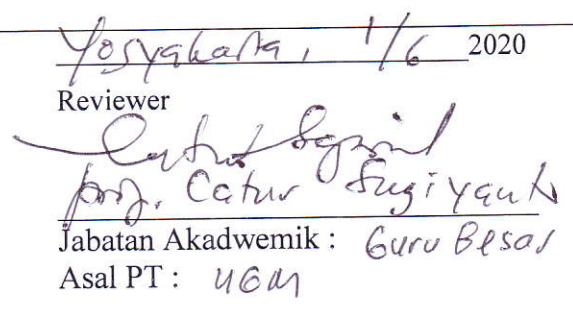 Yogyakarta, 1/6 2020
Reviewer
Prof. Catur Sugiyanto
Jabatan Akadwemik : Guru Besar
Asal PT : UGM